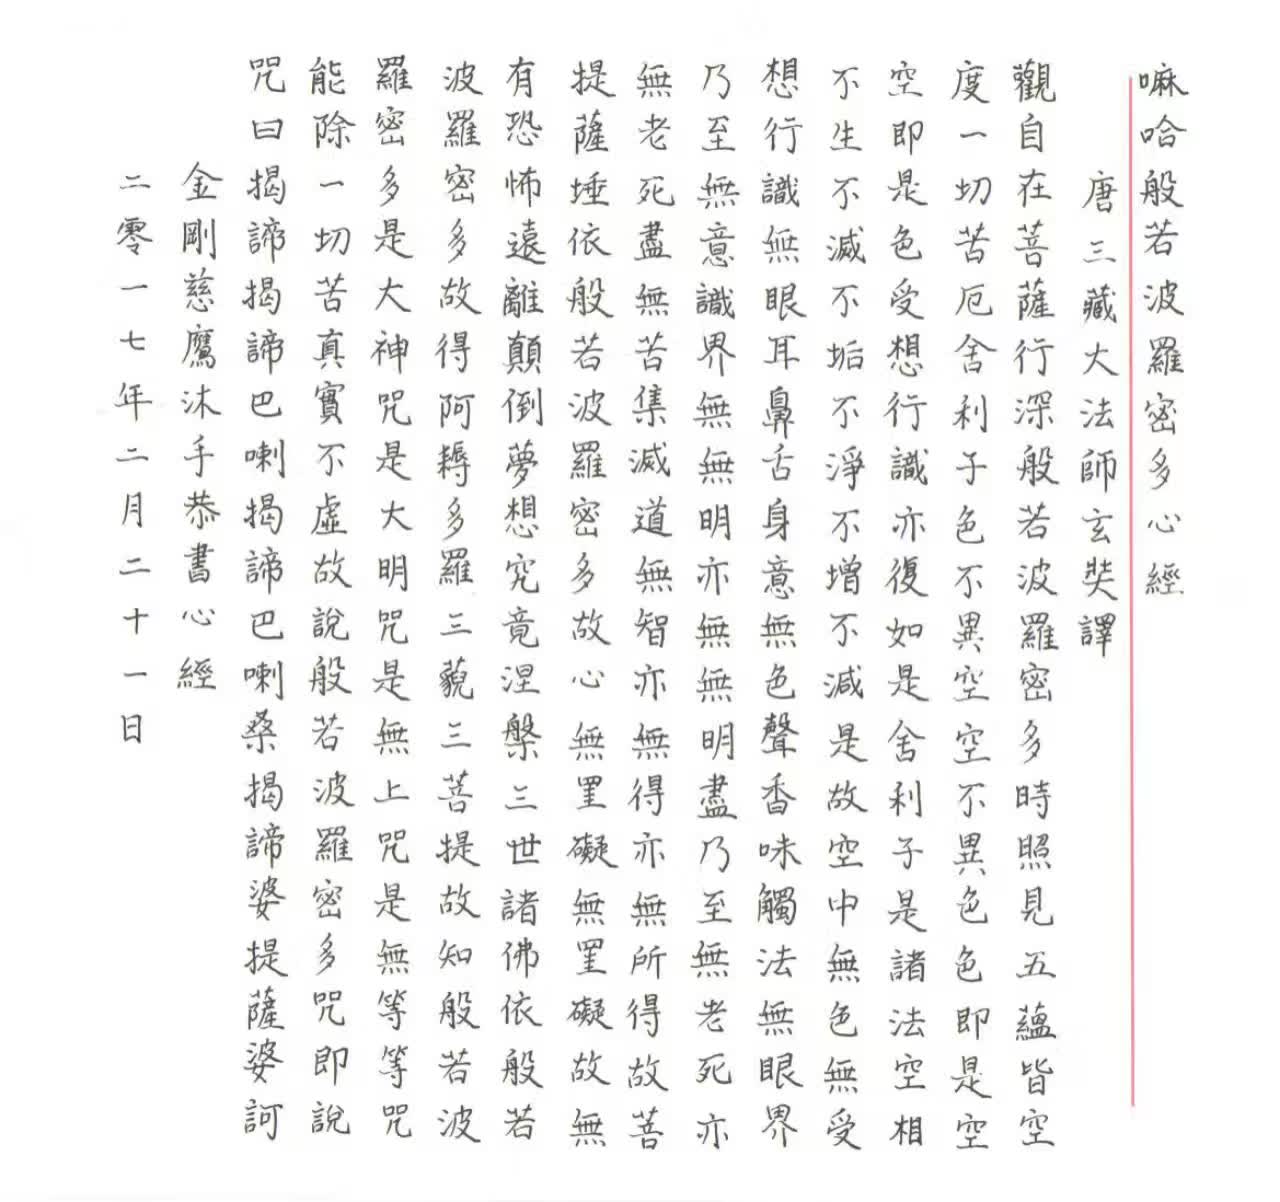 嘛哈般若波羅密多心經
唐三藏大法師玄奘譯
觀自在菩薩行深般若波羅密多時照見五蘊皆空
度一切苦厄舍利子色不異空空不異色色即是空
空即是色受想行識亦復如是舍利子是諸法空相
不生不滅不垢不淨不增不減是故空中無色無受
想行識無眼耳鼻舌身意無色聲香味觸法無眼界
乃至無意識界無無明亦無無明盡乃至無老死亦
無老死盡無苦集滅道無智亦無得亦無所得故菩
提薩埵依般若波羅密多故心無罣礙無罣礙故無
有恐怖遠離顛倒夢想究竟涅槃三世諸佛依般若
波羅密多故得阿耨多羅三藐三菩提故知般若波
羅密多是大神咒是大明咒是無上咒是無等等咒
能除一切苦真實不虛故說般若波羅密多咒即說
咒曰揭諦揭諦巴喇揭諦巴喇桑揭諦婆提薩婆訶
金剛慈鷹沐手恭書心經
二零一七年二月二十一日